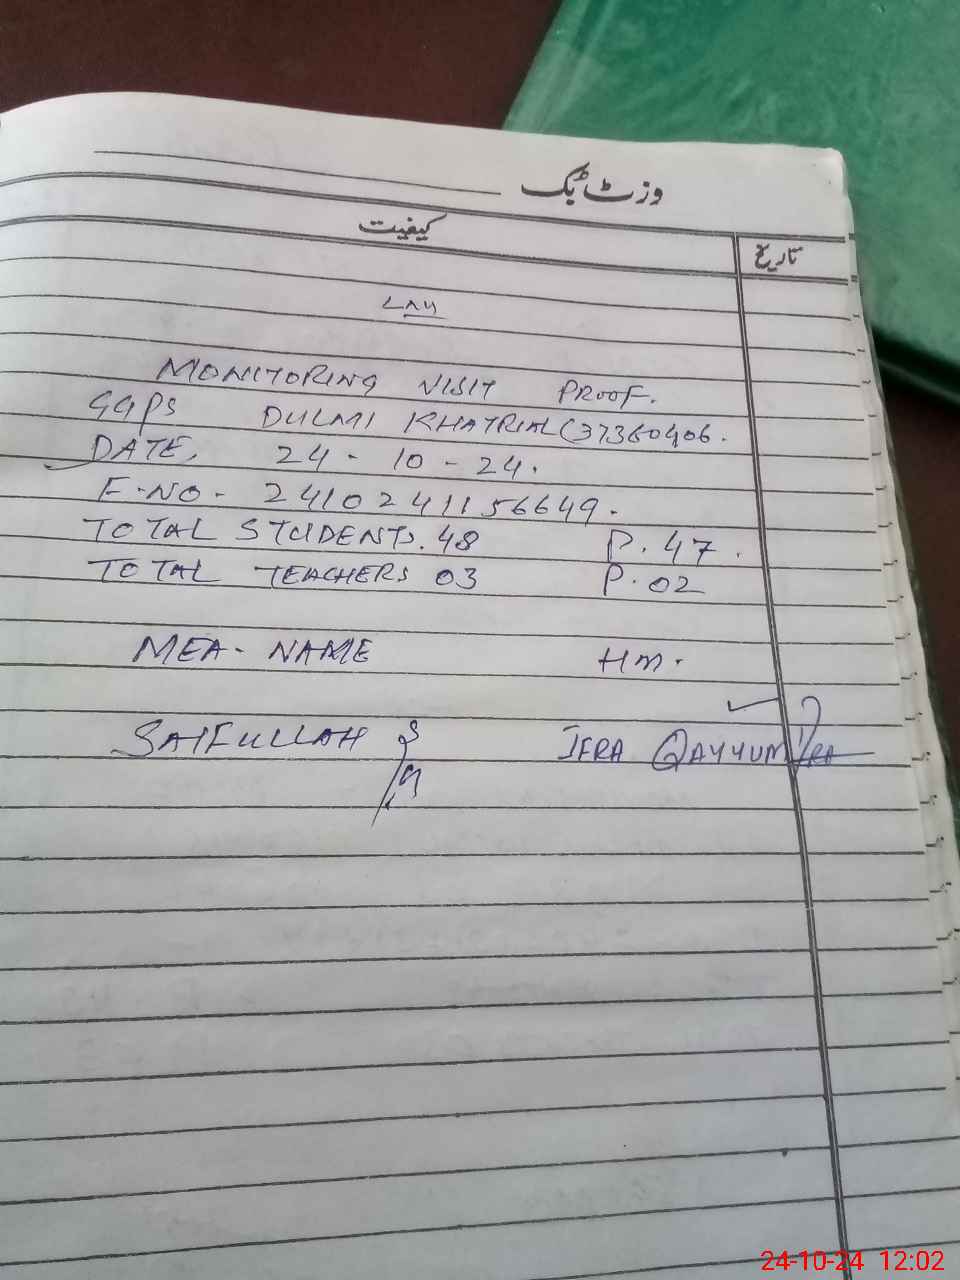 وزٹ بک
کیفیت تاریخ
۷۸۶
MONITORING VISIT PROOF.
GGPS DULMI KHATRIAL (37360406.
DATE, 24 - 10 - 24.
F-NO- 2410241156649.
TOTAL STUDENTS. 48 P. 47.
TOTAL TEACHERS 03 P. 02
MEA- NAME HM.
SAIFULLAH IFRA QAYYUM
24-10-24 12:02